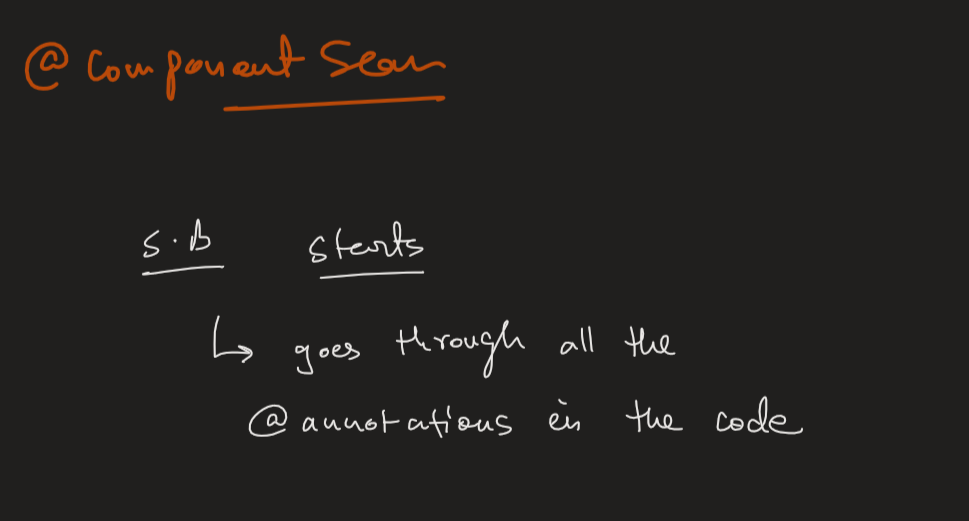 @ Component Scan
S.B starts
↳ goes through all the
@ annotations in the code